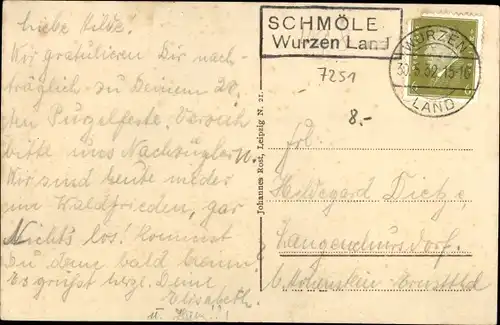 Liebe Hilde!
Wir gratulieren Dir nach-
träglich zu Deinem 20.
ten Purzelfeste. Verzeih
bitte uns Nachzügler
Wir sind heute wieder
im Waldfrieden, gar
Nichts los! Kommst
Du denn bald heim?
Es grüßt herzl. Deine
Elisabeth
u.
Johannes Rost, Leipzig N. 21.
SCHMÖLE
Wurzen Land
WURZEN
30.5.32.15-16
LAND
7251
8.-
Frl.
Hildegard Dietze
Langenchursdorf.
b. Hohenstein-Ernstthl